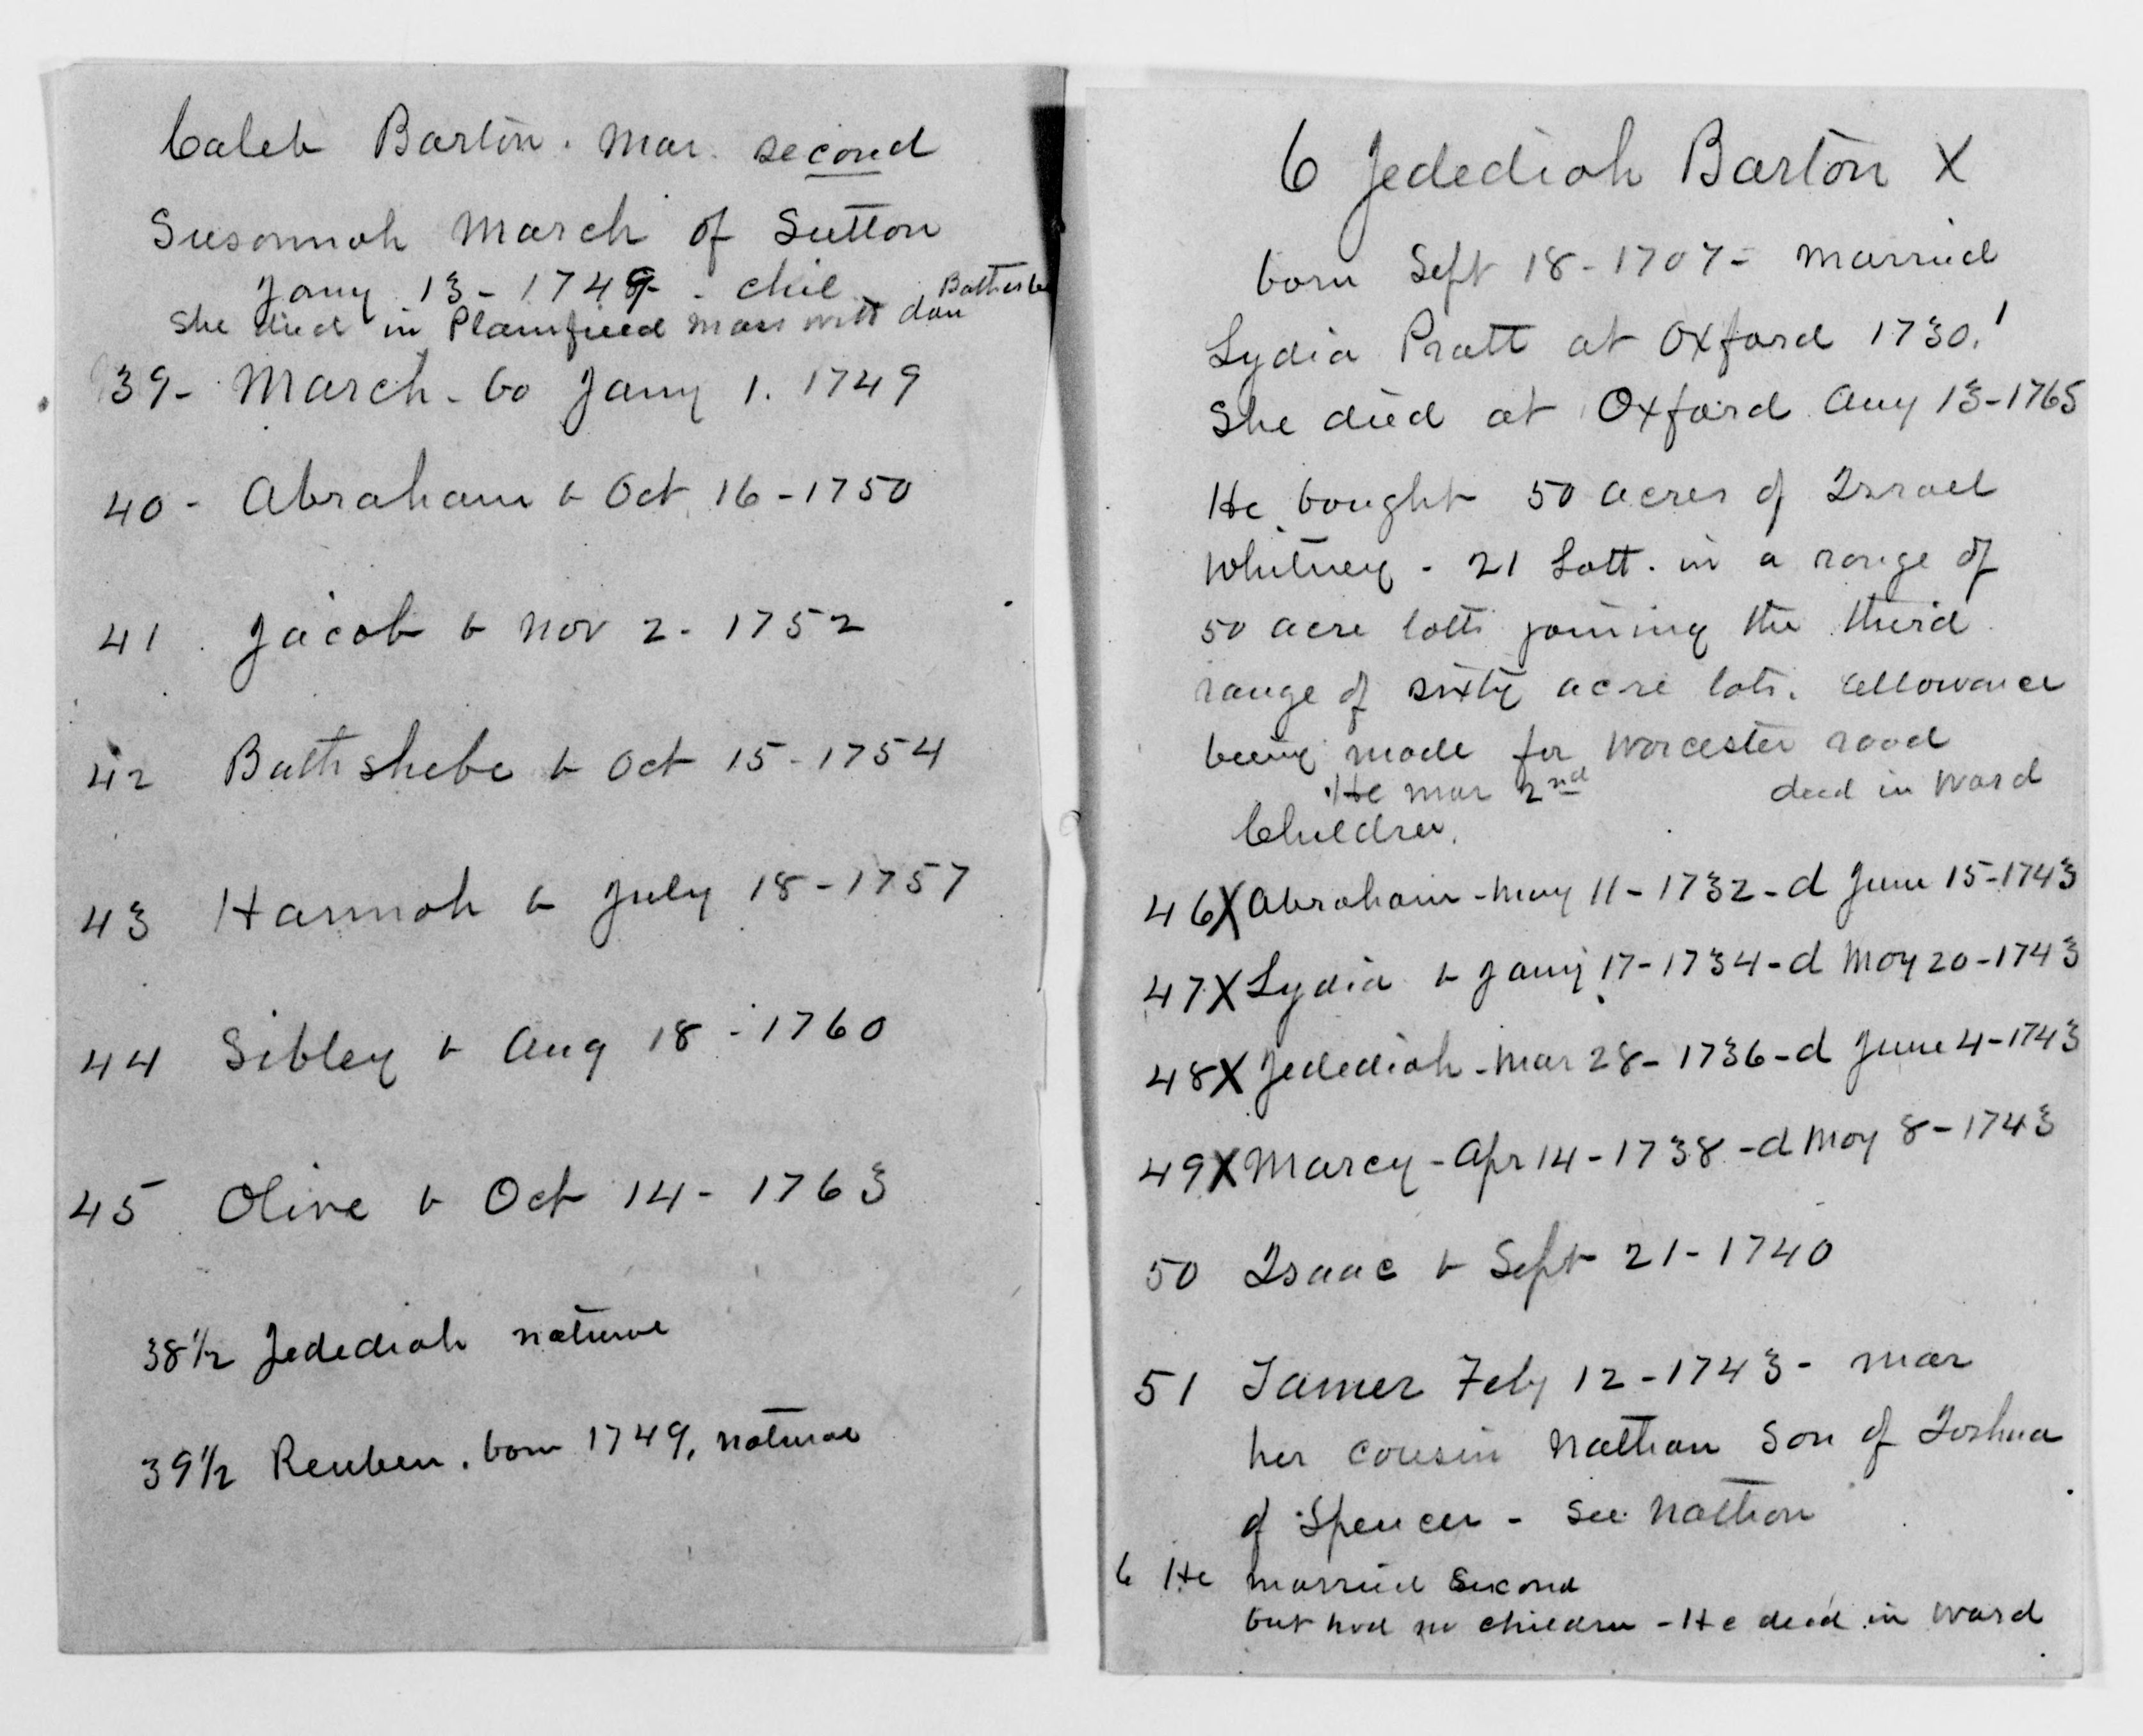 Caleb Barton. Mar. second
Susannah March of Sutton
Jany 13 - 1749 - chil
She died in Plainfield Mass with dau Bathsheba
39 - March - bo Jany 1. 1749
40 - Abraham b Oct 16 - 1750
41 . Jacob b Nov 2 - 1752
42 Bathshebe b Oct 15 - 1754
43 Hannah b July 18 - 1757
44 Sibley b Aug 18 - 1760
45 Olive b Oct 14 - 1763
38 1/2 Jedediah natural
39 1/2 Reuben. born 1749, natural
6 Jedediah Barton X
born Sept 18 - 1707 = married
Lydia Pratt at Oxford 1730.
She died at Oxford Aug 13 - 1765
He bought 50 acres of Israel
Whitney - 21 Lott. in a range of
50 acre lotts joining the third
range of sixty acre lots. allowance
being made for Worcester road
He mar 2nd died in Ward
Children.
46 X Abraham - May 11 - 1732 - d June 15 - 1743
47 X Lydia b Jany 17 - 1734 - d May 20 - 1743
48 X Jedediah - Mar 28 - 1736 - d June 4 - 1743
49 X Marcy - Apr 14 - 1738 - d May 8 - 1743
50 Isaac b Sept 21 - 1740
51 Tamer Feby 12 - 1743 - mar
her cousin Nathan Son of Joshua
of Spencer - See Nathan
6 He married Second
but had no children - He died in Ward